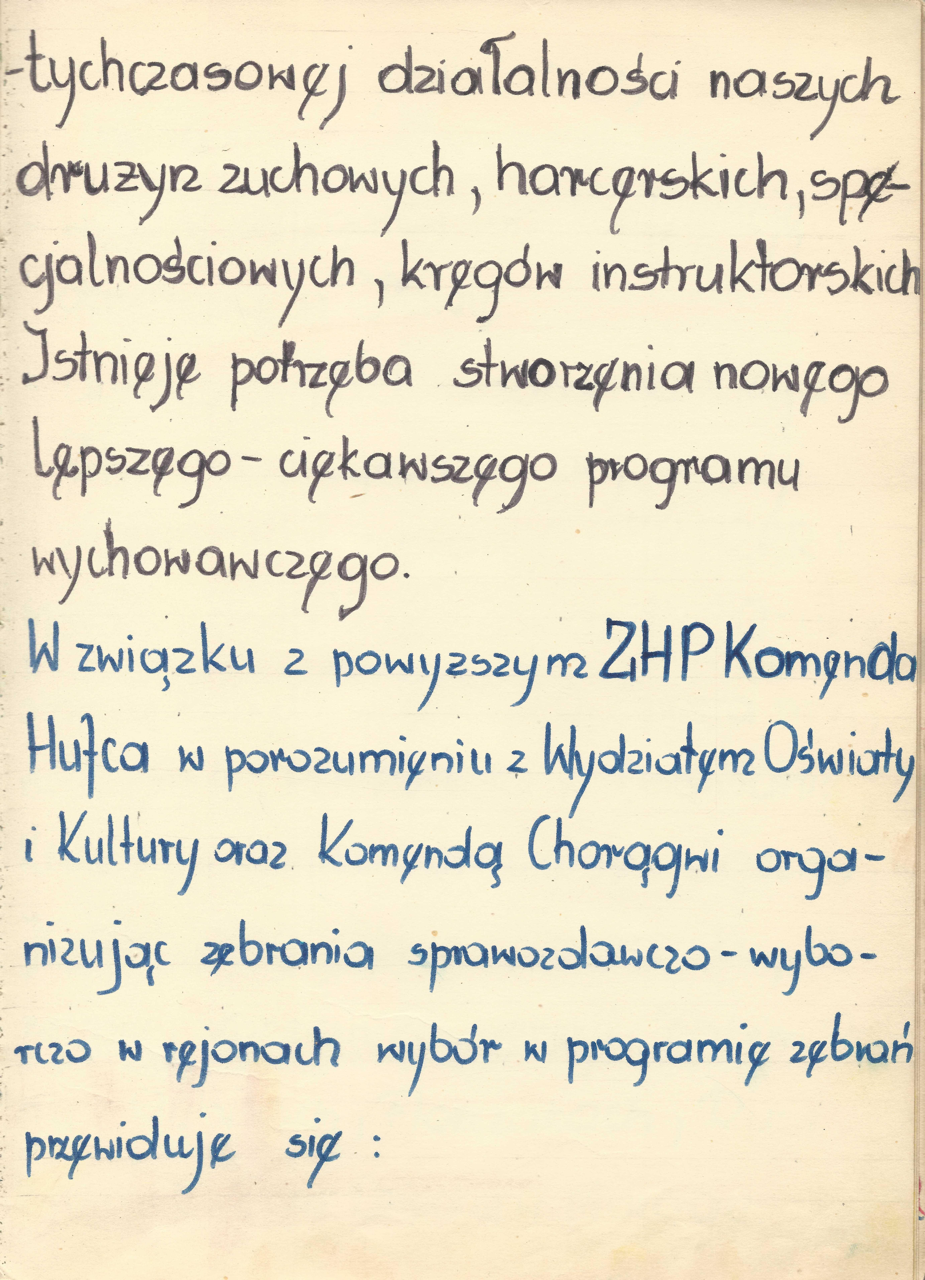 -tychczasowej działalności naszych
drużyn zuchowych, harcerskich, spe-
cjalnościowych, kręgów instruktorskich
Istnieje potrzeba stworzenia nowego
lepszego - ciekawszego programu
wychowawczego.
W związku z powyzszym ZHP Komenda
Hufca w porozumieniu z Wydziałem Oświaty
i Kultury oraz Komendą Chorągwi orga-
nizując zebrania sprawozdawczo - wybo-
rczo w rejonach wybór w programie zebrań
przewiduje się :